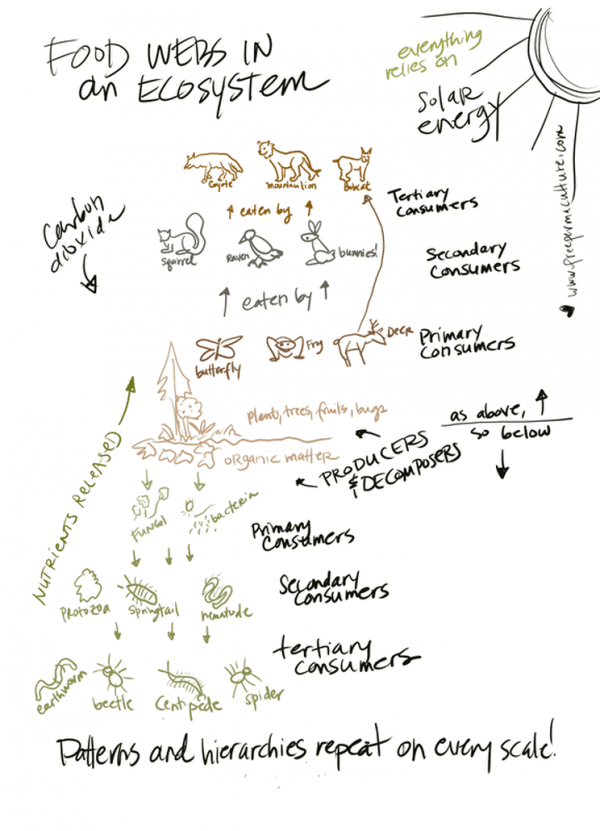 FOOD WEBS IN
an ECOSYSTEM
everything
relies on
Solar
energy
www.freepermaculture.com
Coyote
mountain lion
Bobcat
Tertiary
Consumers
eaten by
Carbon
dioxide
squirrel
Raven
bunnies!
Secondary
Consumers
eaten by
butterfly
Frog
Deer
Primary
Consumers
plants, trees, fruits, bugs
as above,
so below
organic matter
PRODUCERS
& DECOMPOSERS
NUTRIENTS RELEASED
FUNGI
bacteria
Primary
Consumers
Protozoa
Springtail
nematode
Secondary
consumers
earthworm
beetle
Centipede
spider
tertiary
consumers
Patterns and hierarchies repeat on every scale!